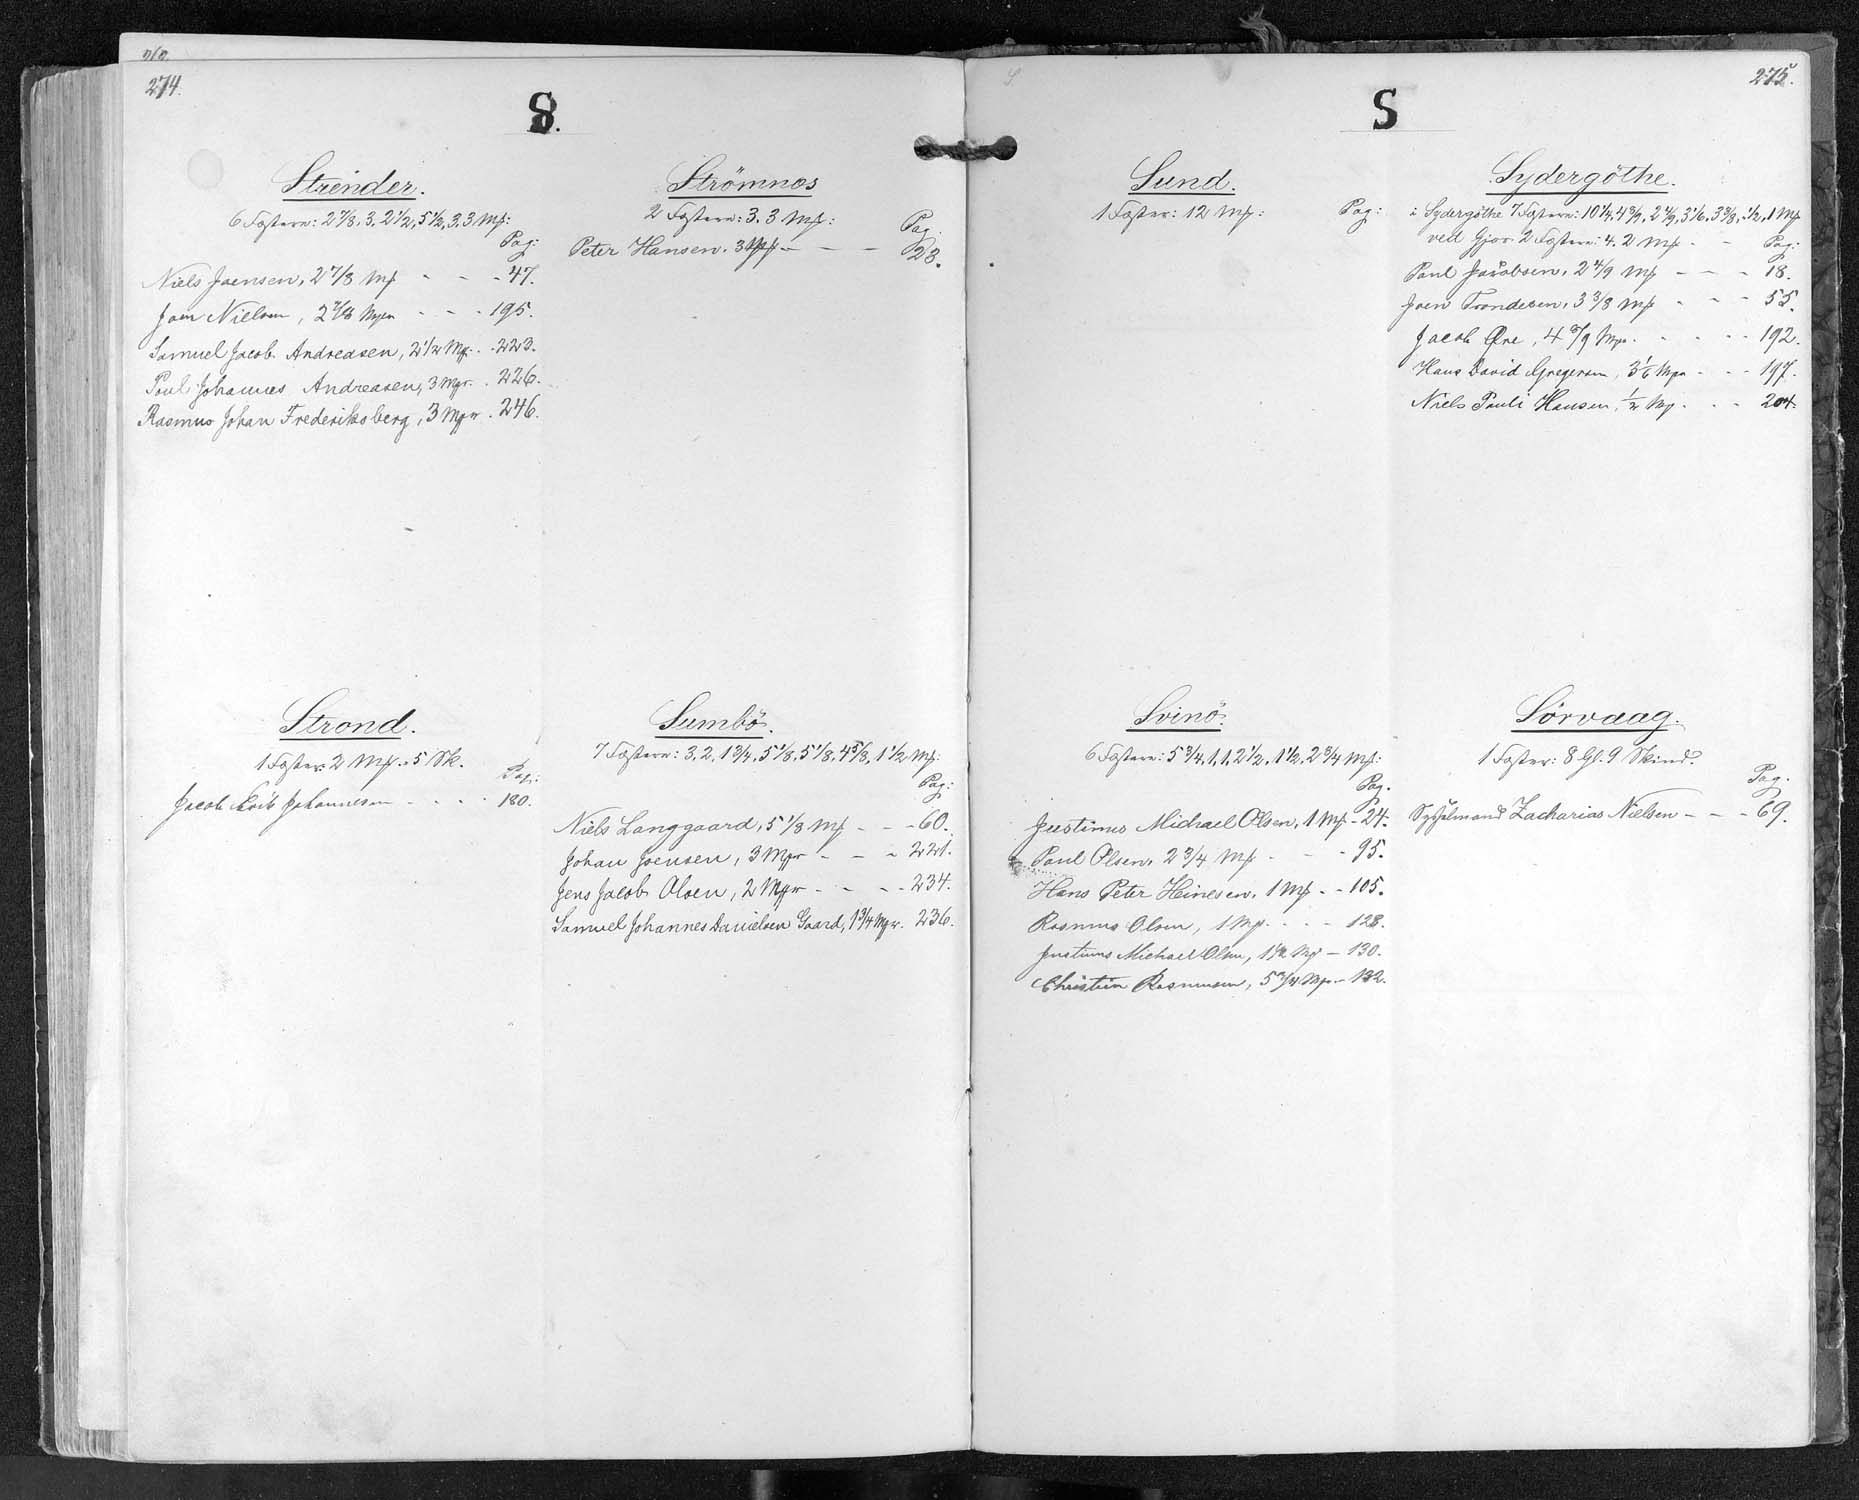 274.
S.
Strender.
6 Fæstere: 2 7/8, 3, 2 1/2, 5 1/2, 3, 3 Mk:
Pag:
Niels Joensen, 2 7/8 Mk - - - 47.
Joen Nielsen, 2 7/8 Mkr - - - 195.
Samuel Jacob Andreasen, 2 1/2 Mgr. . 223.
Poul Johannes Andreasen, 3 Mgr. . 226.
Rasmus Johan Frederiksberg, 3 Mgr . 246.
Strömnæs
2 Fæstere: 3, 3 Mk:
Pag.
Peter Hansen, 3 Mk - - - 23.
Strond.
1 Fæster: 2 Mk. 5 Sk.
Pag:
Jacob Johannesen - - - - 180.
Sumbö.
7 Fæstere: 3, 2, 1 3/4, 5 1/8, 5 1/8, 4 5/8, 1 1/2 Mk:
Pag:
Niels Langgaard, 5 1/8 Mk - - - 60.
Johan Joensen, 3 Mgr - - - 221.
Jens Jacob Olsen, 2 Mgr - - - - 234.
Samuel Johannes Danielsen Gaard, 1 3/4 Mgr. 236.
S.
275.
S
Sund.
1 Fæster: 12 Mk:
Pag:
Sydergöthe.
i Sydergöthe 7 Fæstere: 10 1/9, 4 8/9, 2 4/9, 3 1/6, 3 3/8, 1/2, 1 Mk
ved Gjov 2 Fæstere: 4, 2 Mk - - Pag:
Poul Jacobsen, 2 4/9 Mk - - - 18.
Joen Trondesen, 3 3/8 Mk - - - 55.
Jacob Øre, 4 8/9 Mgr. - - - - 192.
Hans David Gregersen, 3 1/6 Mgr - - - 197.
Niels Pauli Hansen, 1/2 Mg. - - - 204.
Svinö.
6 Fæstere: 5 3/4, 1, 1, 2 1/2, 1 1/2, 2 3/4 Mk:
Pag.
Justinus Michael Olsen, 1 Mk - 24.
Poul Olsen, 2 3/4 Mk - - - 95.
Hans Peter Heinesen, 1 Mk - - 105.
Rasmus Olsen, 1 Mg. - - - 128.
Justinus Michael Olsen, 1 1/2 Mg - 130.
Christian Rasmussen, 5 3/4 Mgr - 132.
Sörvaag.
1 Fæster: 8 Gl. 9 Skind.
Pag.
Sysselmand Zacharias Nielsen - - - 69.